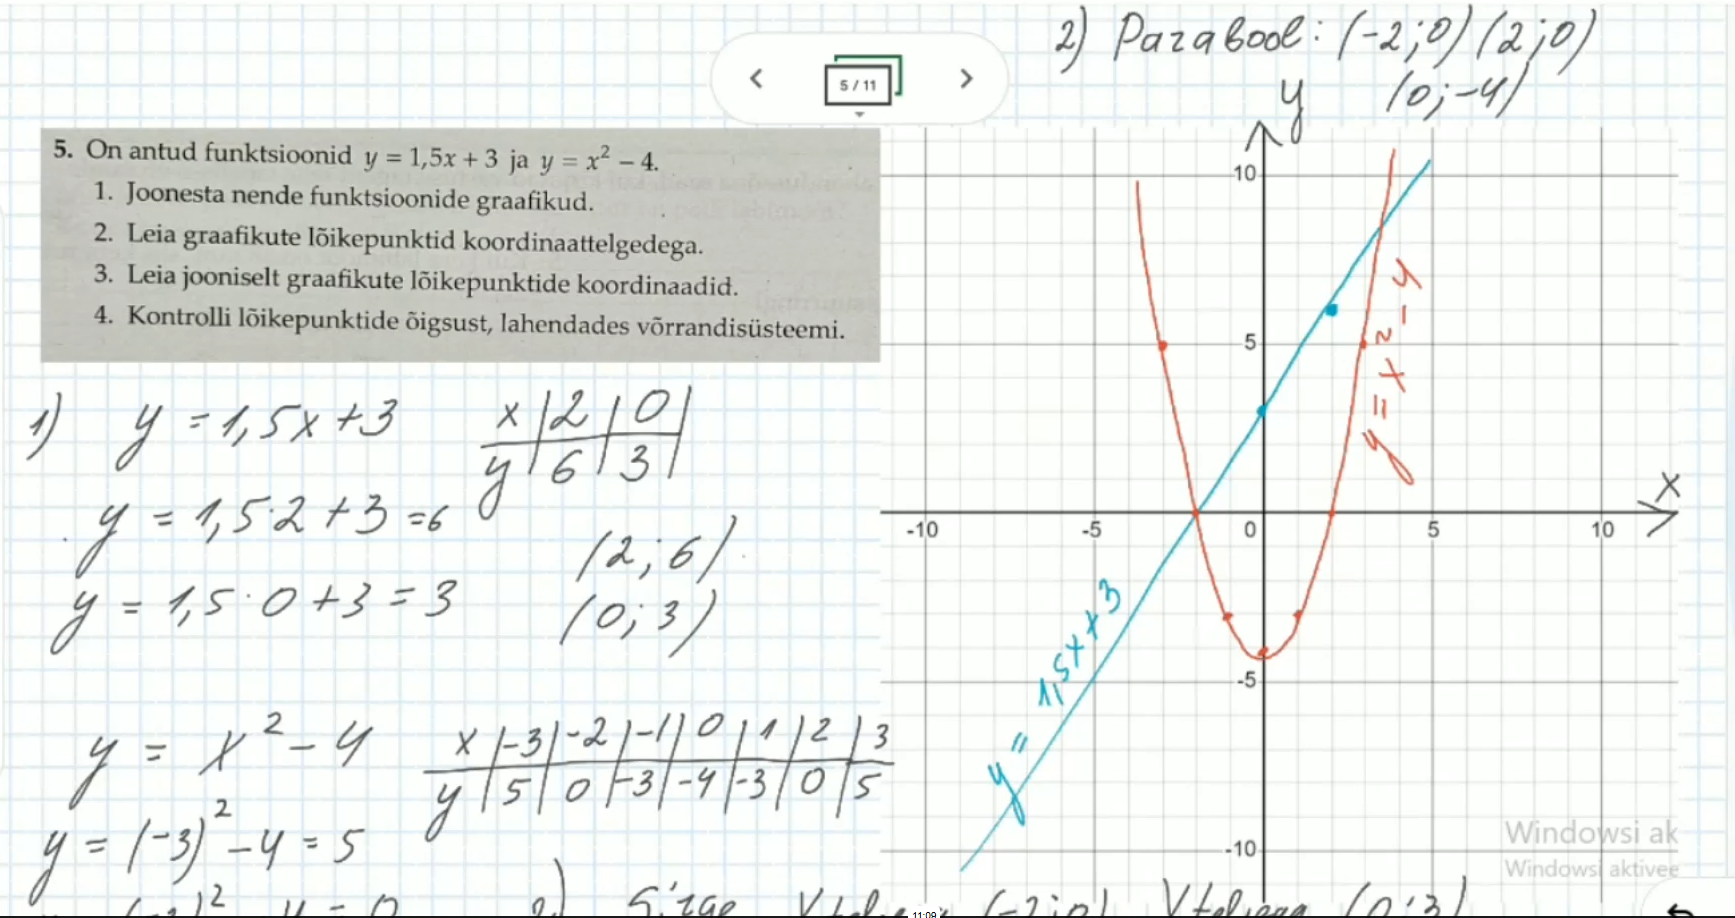 2) Parabool: (-2;0) (2;0)
(0;-4)
5 / 11
5. On antud funktsioonid y = 1,5x + 3 ja y = x² – 4.
1. Joonesta nende funktsioonide graafikud.
2. Leia graafikute lõikepunktid koordinaattelgedega.
3. Leia jooniselt graafikute lõikepunktide koordinaadid.
4. Kontrolli lõikepunktide õigsust, lahendades võrrandisüsteemi.
1) y = 1,5x + 3
x | 2 | 0 |
y | 6 | 3 |
y = 1,5·2 + 3 = 6
(2; 6)
y = 1,5·0 + 3 = 3
(0; 3)
y = x² - 4
x | -3 | -2 | -1 | 0 | 1 | 2 | 3
y | 5 | 0 | -3 | -4 | -3 | 0 | 5
y = (-3)² - 4 = 5
y
10
5
-10 -5 0 5 10
x
-5
-10
y = x² - 4
y = 1,5x + 3
Windowsi ak
Windowsi aktivee
11:09